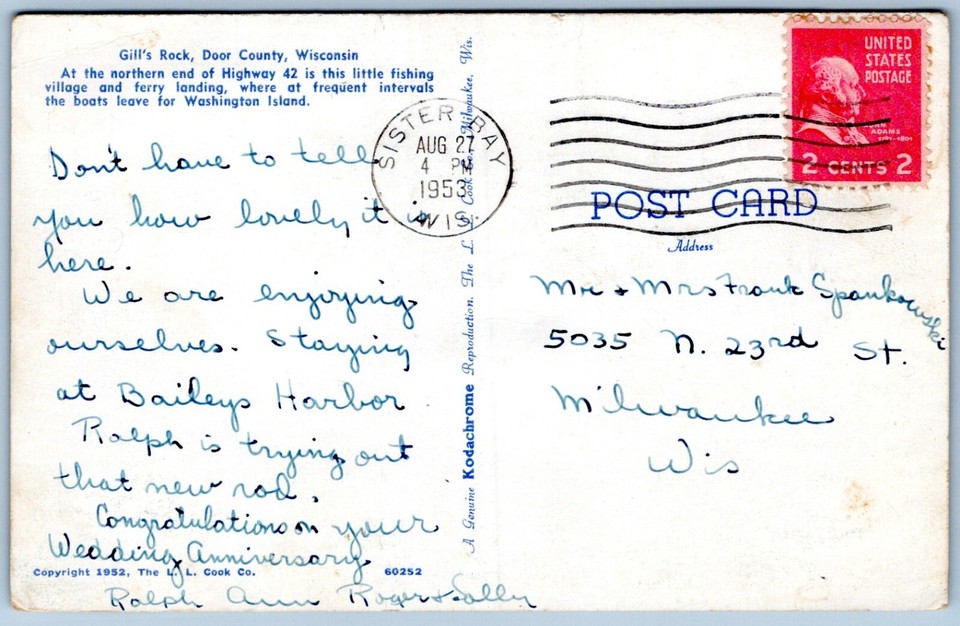 Gill's Rock, Door County, Wisconsin
At the northern end of Highway 42 is this little fishing
village and ferry landing, where at frequent intervals
the boats leave for Washington Island.
Don't have to tell
you how lovely it is
here.
We are enjoying
ourselves. Staying
at Baileys Harbor
Ralph is trying out
that new rod.
Congratulations on your
Wedding Anniversary
Copyright 1952, The L. L. Cook Co. 60252
Ralph Ann Roger & Sally
A Genuine Kodachrome Reproduction. The L. L. Cook Co., Milwaukee, Wis.
SISTER BAY
AUG 27
4 PM
1953
WIS.
UNITED
STATES
POSTAGE
JOHN
ADAMS
1797-1801
2 CENTS 2
POST CARD
Address
Mr + Mrs Frank Spankowski
5035 N. 23rd St.
Milwaukee
Wis